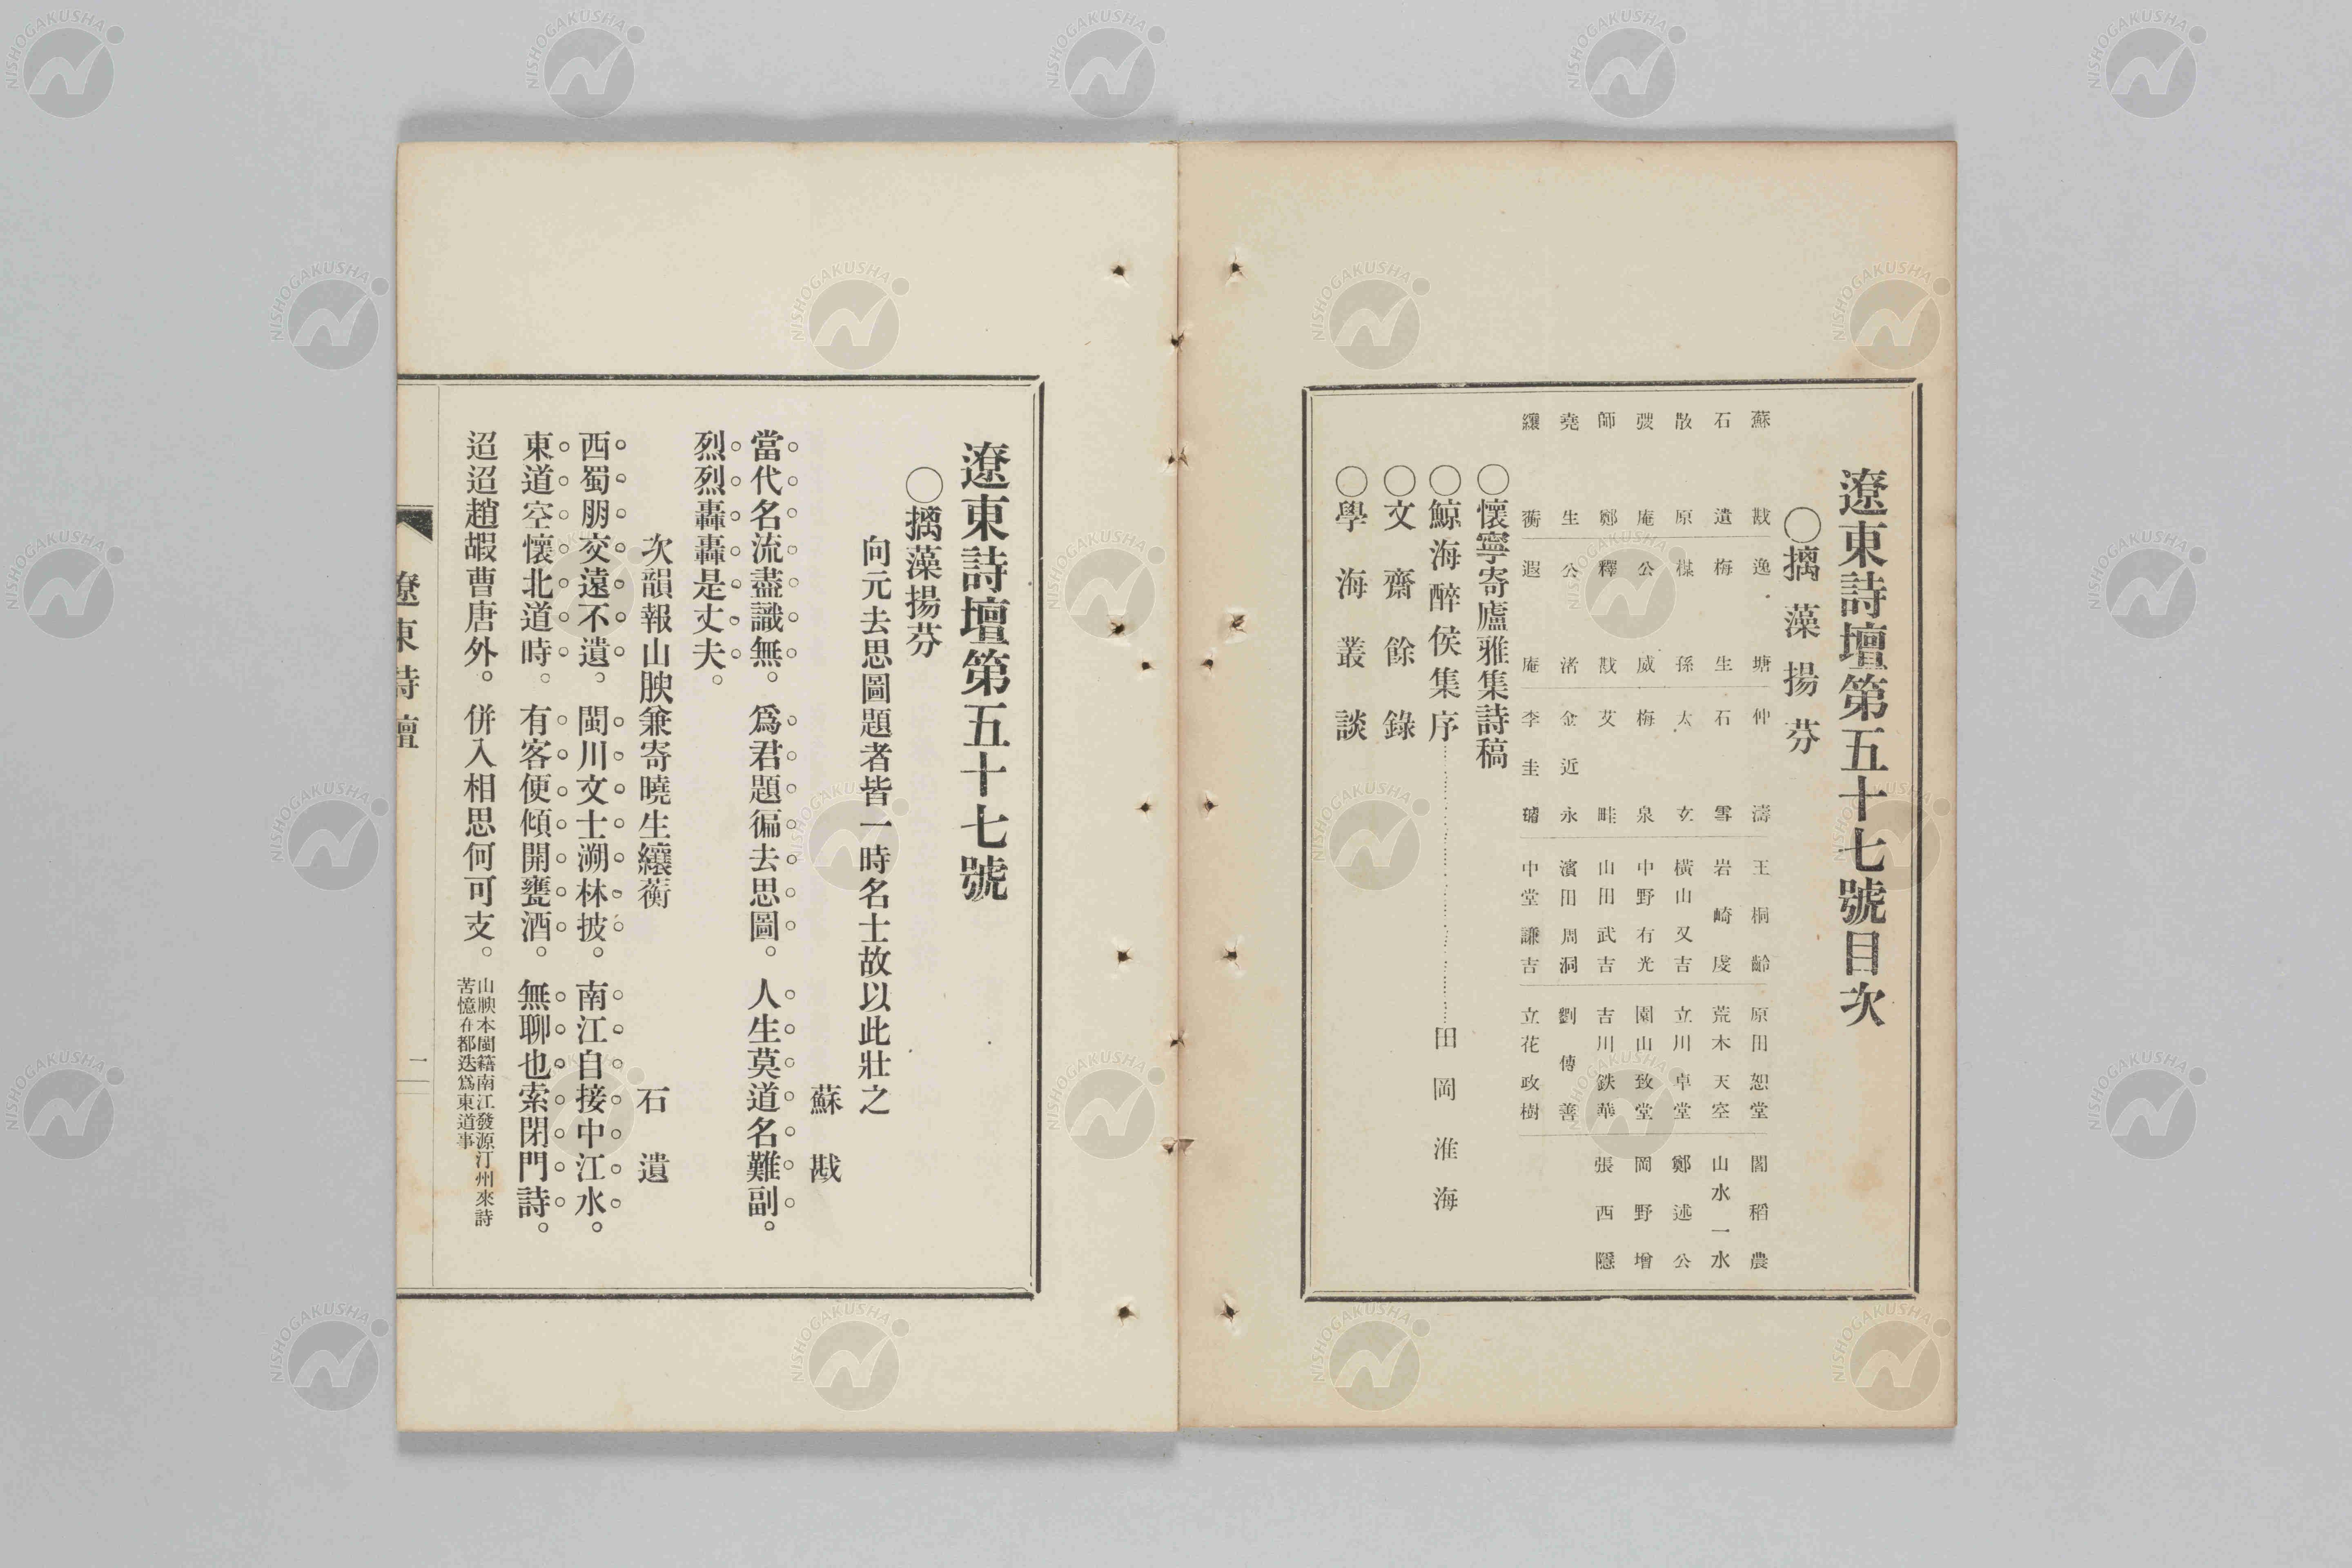 遼東詩壇第五十七號目次
○摛藻揚芬
蘇戡 逸塘 仲濤 王桐齡 原田恕堂 閻稻農
石遺 梅生 石雪 岩崎虔 荒木天空 山水一水
散原 楳孫 太玄 橫山又吉 立川卓堂 鄭述公
弢庵 公威 梅泉 中野右光 園山致堂 岡野增
師鄭 釋戡 艾畦 山田武吉 吉川鉄華 張西隱
堯生 公渚 金近永 濱田周洞 劉傳善
纕蘅 遐庵 李圭璿 中堂謙吉 立花政樹
○懷寧寄廬雅集詩稿
○鯨海醉侯集序……田岡淮海
○文齋餘錄
○學海叢談
遼東詩壇第五十七號
○摛藻揚芬
向元去思圖題者皆一時名士故以此壯之
蘇戡
當代名流盡識無。爲君題徧去思圖。人生莫道名難副。
烈烈轟轟是丈夫。
次韻報山腴兼寄曉生纕蘅 石遺
西蜀朋交遠不遺。閩川文士溯林披。南江自接中江水。
東道空懷北道時。有客便傾開甕酒。無聊也索閉門詩。
迢迢趙嘏曹唐外。併入相思何可支。山腴本閩籍南江發源汀州來詩
苦憶在都迭爲東道事
遼東詩壇
一
NISHOGAKUSHA